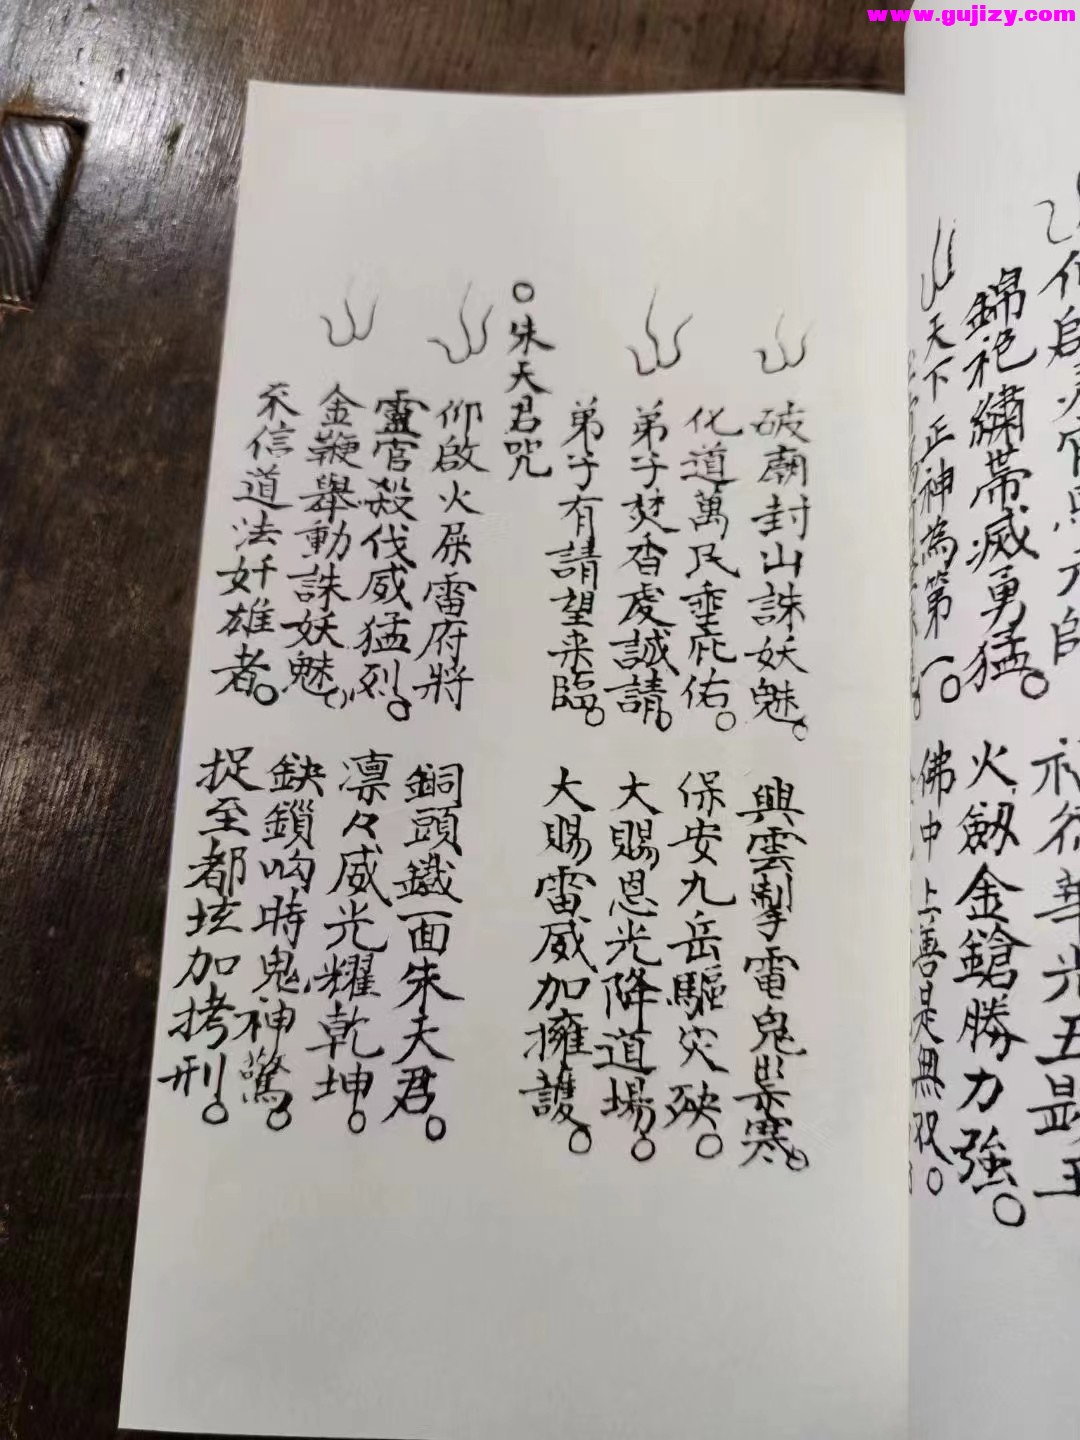 www.gujizy.com
錦袍繡帶威勇猛。火劔金鎗勝力強。
天下正神為第一。佛中上善是無双。
破廟封山誅妖魅。興雲掣電鬼祟寒。
化道萬民垂庇佑。保安九岳驅灾殃。
弟子焚香虔誠請。大賜恩光降道場。
弟子有請望来臨。大賜雷威加擁護。
○朱天君咒
仰啟火屎雷府將 銅頭鐵面朱天君。
靈官殺伐威猛烈。凛々威光耀乾坤。
金鞭舉動誅妖魅。鈌鎖响時鬼神驚。
不信道法奸雄者。捉至都垓加拷刑。